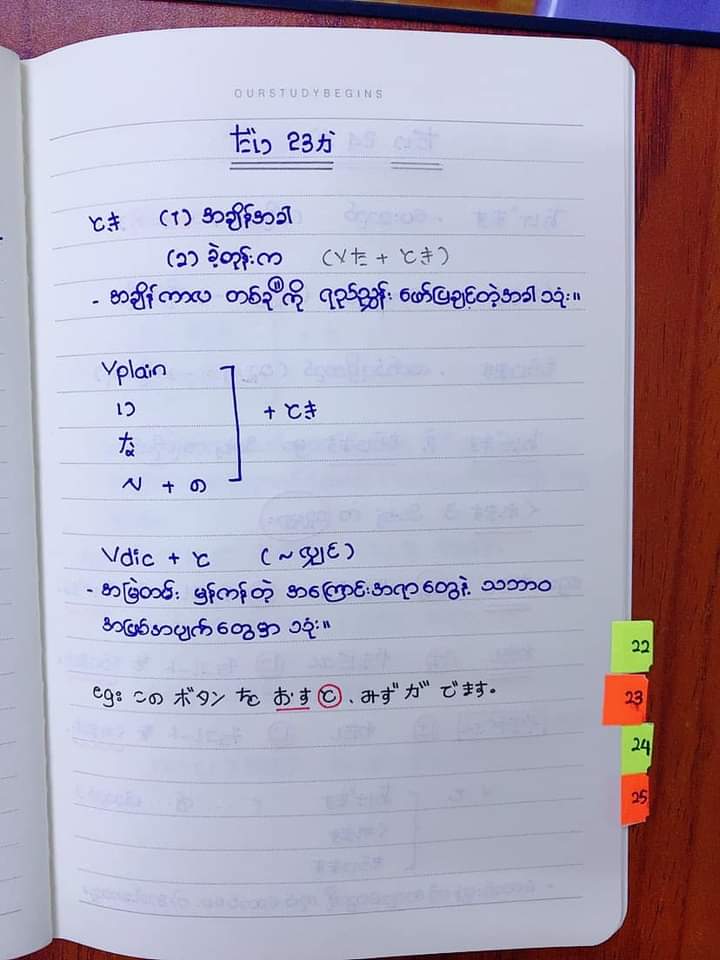 OURSTUDYBEGINS
だい 23か
とき (၁) အချိန်အခါ
(၁) ခဲ့တုန်းက (Vた + とき)
- အချိန်ကာလ တစ်ခုကို ရည်ညွှန်း ဖော်ပြချင်တဲ့အခါ သုံး။
Vplain
い
+ とき
な
N + の
Vdic + と (~လျှင်)
- အမြဲတမ်း မှန်ကန်တဲ့ အကြောင်းအရာတွေနဲ့ သဘာဝ
အဖြစ်အပျက်တွေမှာ သုံး။
eg: この ボタン を おす と、みず が でます。
22
23
24
25